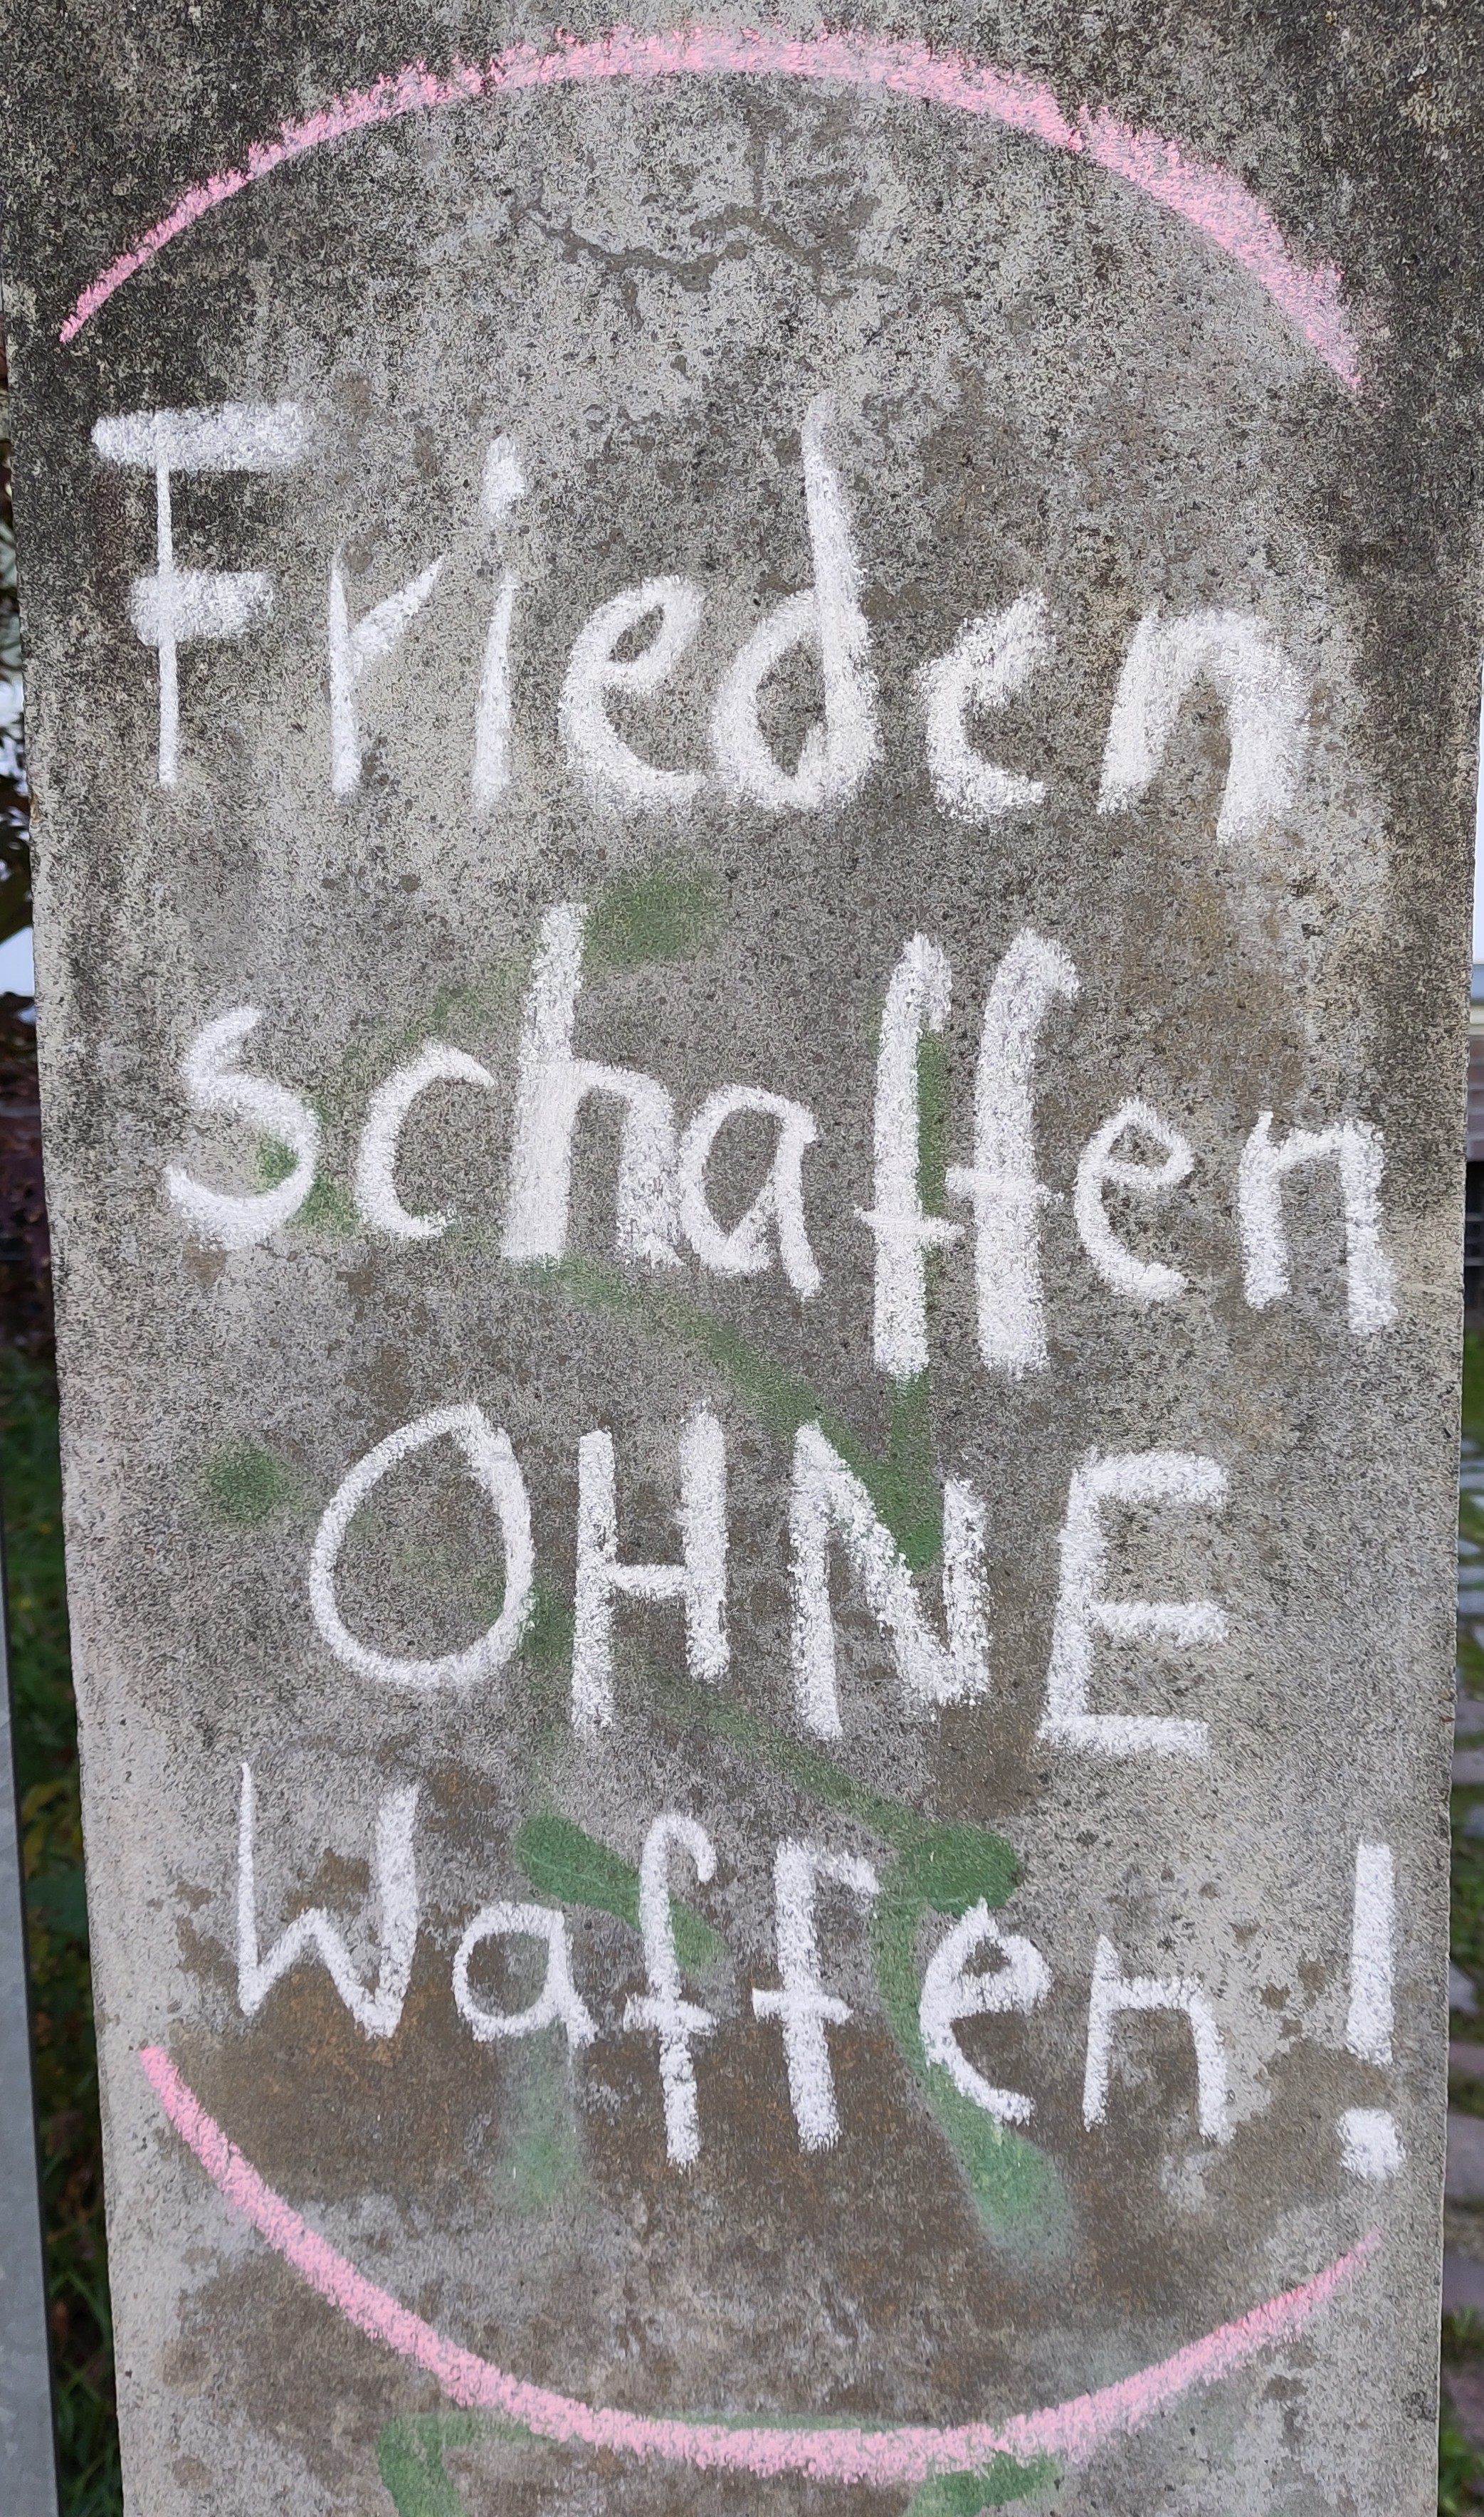 Frieden
schaffen
OHNE
Waffen!